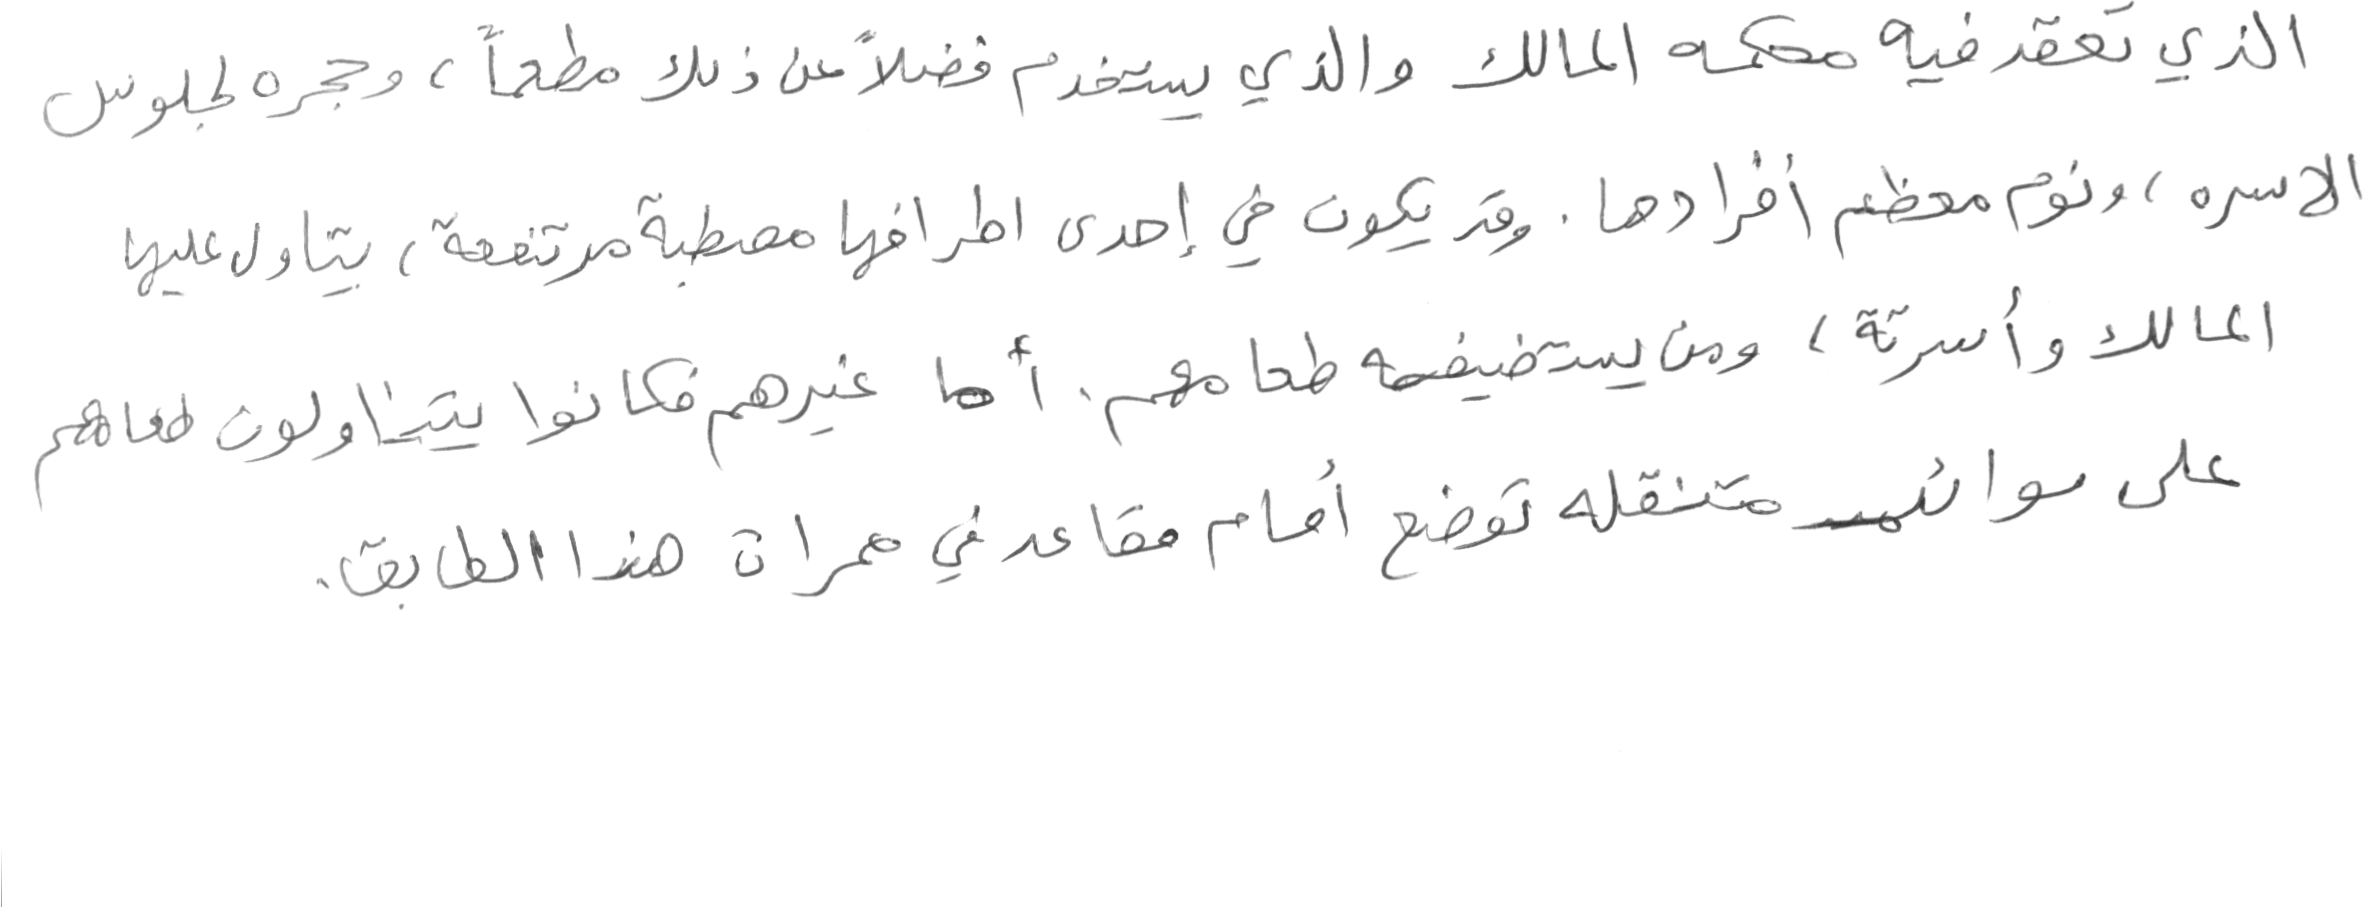 الذي تعقد فيه محكمه المالك والذي يستخدم فضلاً عن ذلك مطعماً، وحجره لجلوس
الاسره، ونوم معظم أفرادها. وقد يكون في إحدى اطرافها مصطبة مرتفعة، يتناول عليها
المالك وأسرتة، ومن يستضيفه طعامهم. أما غيرهم فكانوا يتناولون طعامهم
على موائد متنقله توضع أمام مقاعد في ممرات هذا الطابق.